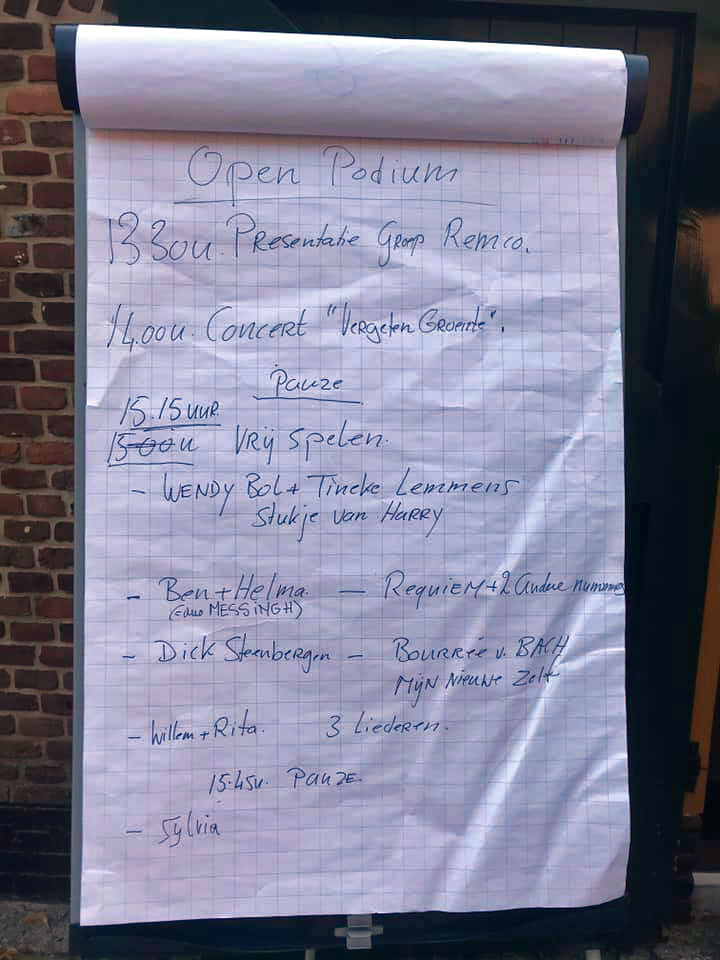 Open Podium
1330u. Presentatie Groep Remco.
14.00u. Concert "Vergeten Groente".
Pauze
15.15 uur
1500u Vrij spelen.
- Wendy Bol + Tineke Lemmens
Stukje van Harry
- Ben + Helma. — Requiem + 2 andere nummers
(= duo MESSINGH)
- Dick Steenbergen - Bourrée v. BACH
Mijn nieuwe Zelf
- Willem + Rita. 3 Liederen.
15.45u. Pauze.
- Sylvia